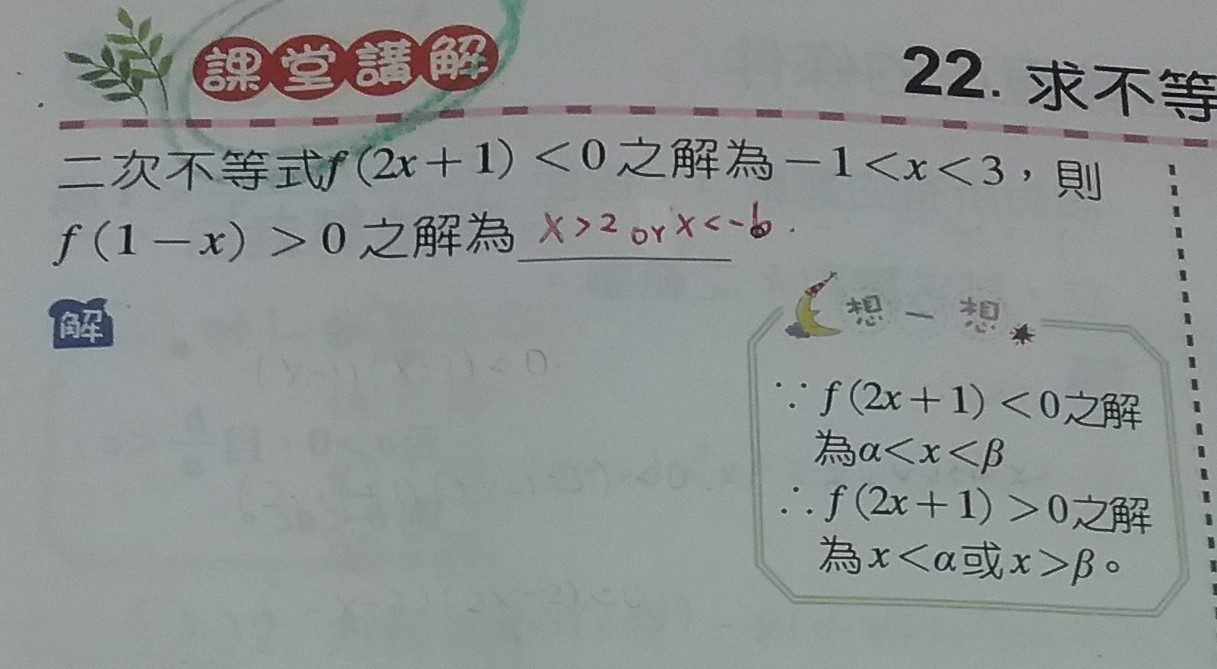 課堂講解
22. 求不等
二次不等式f(2x+1)<0之解為-1<x<3,則
f(1-x)>0之解為 x>2 or x<-6.
解
想一想
∵f(2x+1)<0之解
為α<x<β
∴f(2x+1)>0之解
為x<α或x>β。